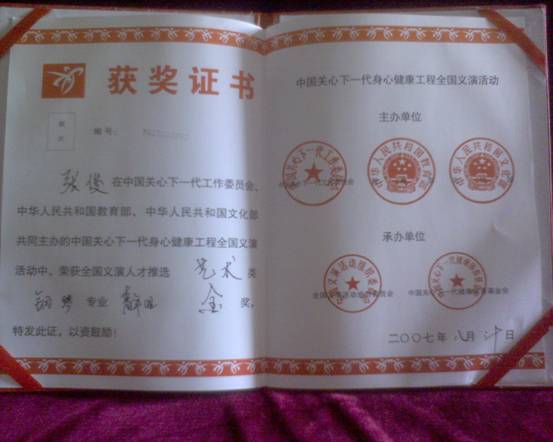 获奖证书
照片
编号:
张俊 在中国关心下一代工作委员会、
中华人民共和国教育部、中华人民共和国文化部
共同主办的中国关心下一代身心健康工程全国义演
活动中,荣获全国义演人才推选 艺术 类
钢琴 专业 金 奖。
特发此证,以资鼓励!
中国关心下一代身心健康工程全国义演活动
主办单位
中华人民共和国教育部
中华人民共和国文化部
承办单位
二〇〇七年 八月 日